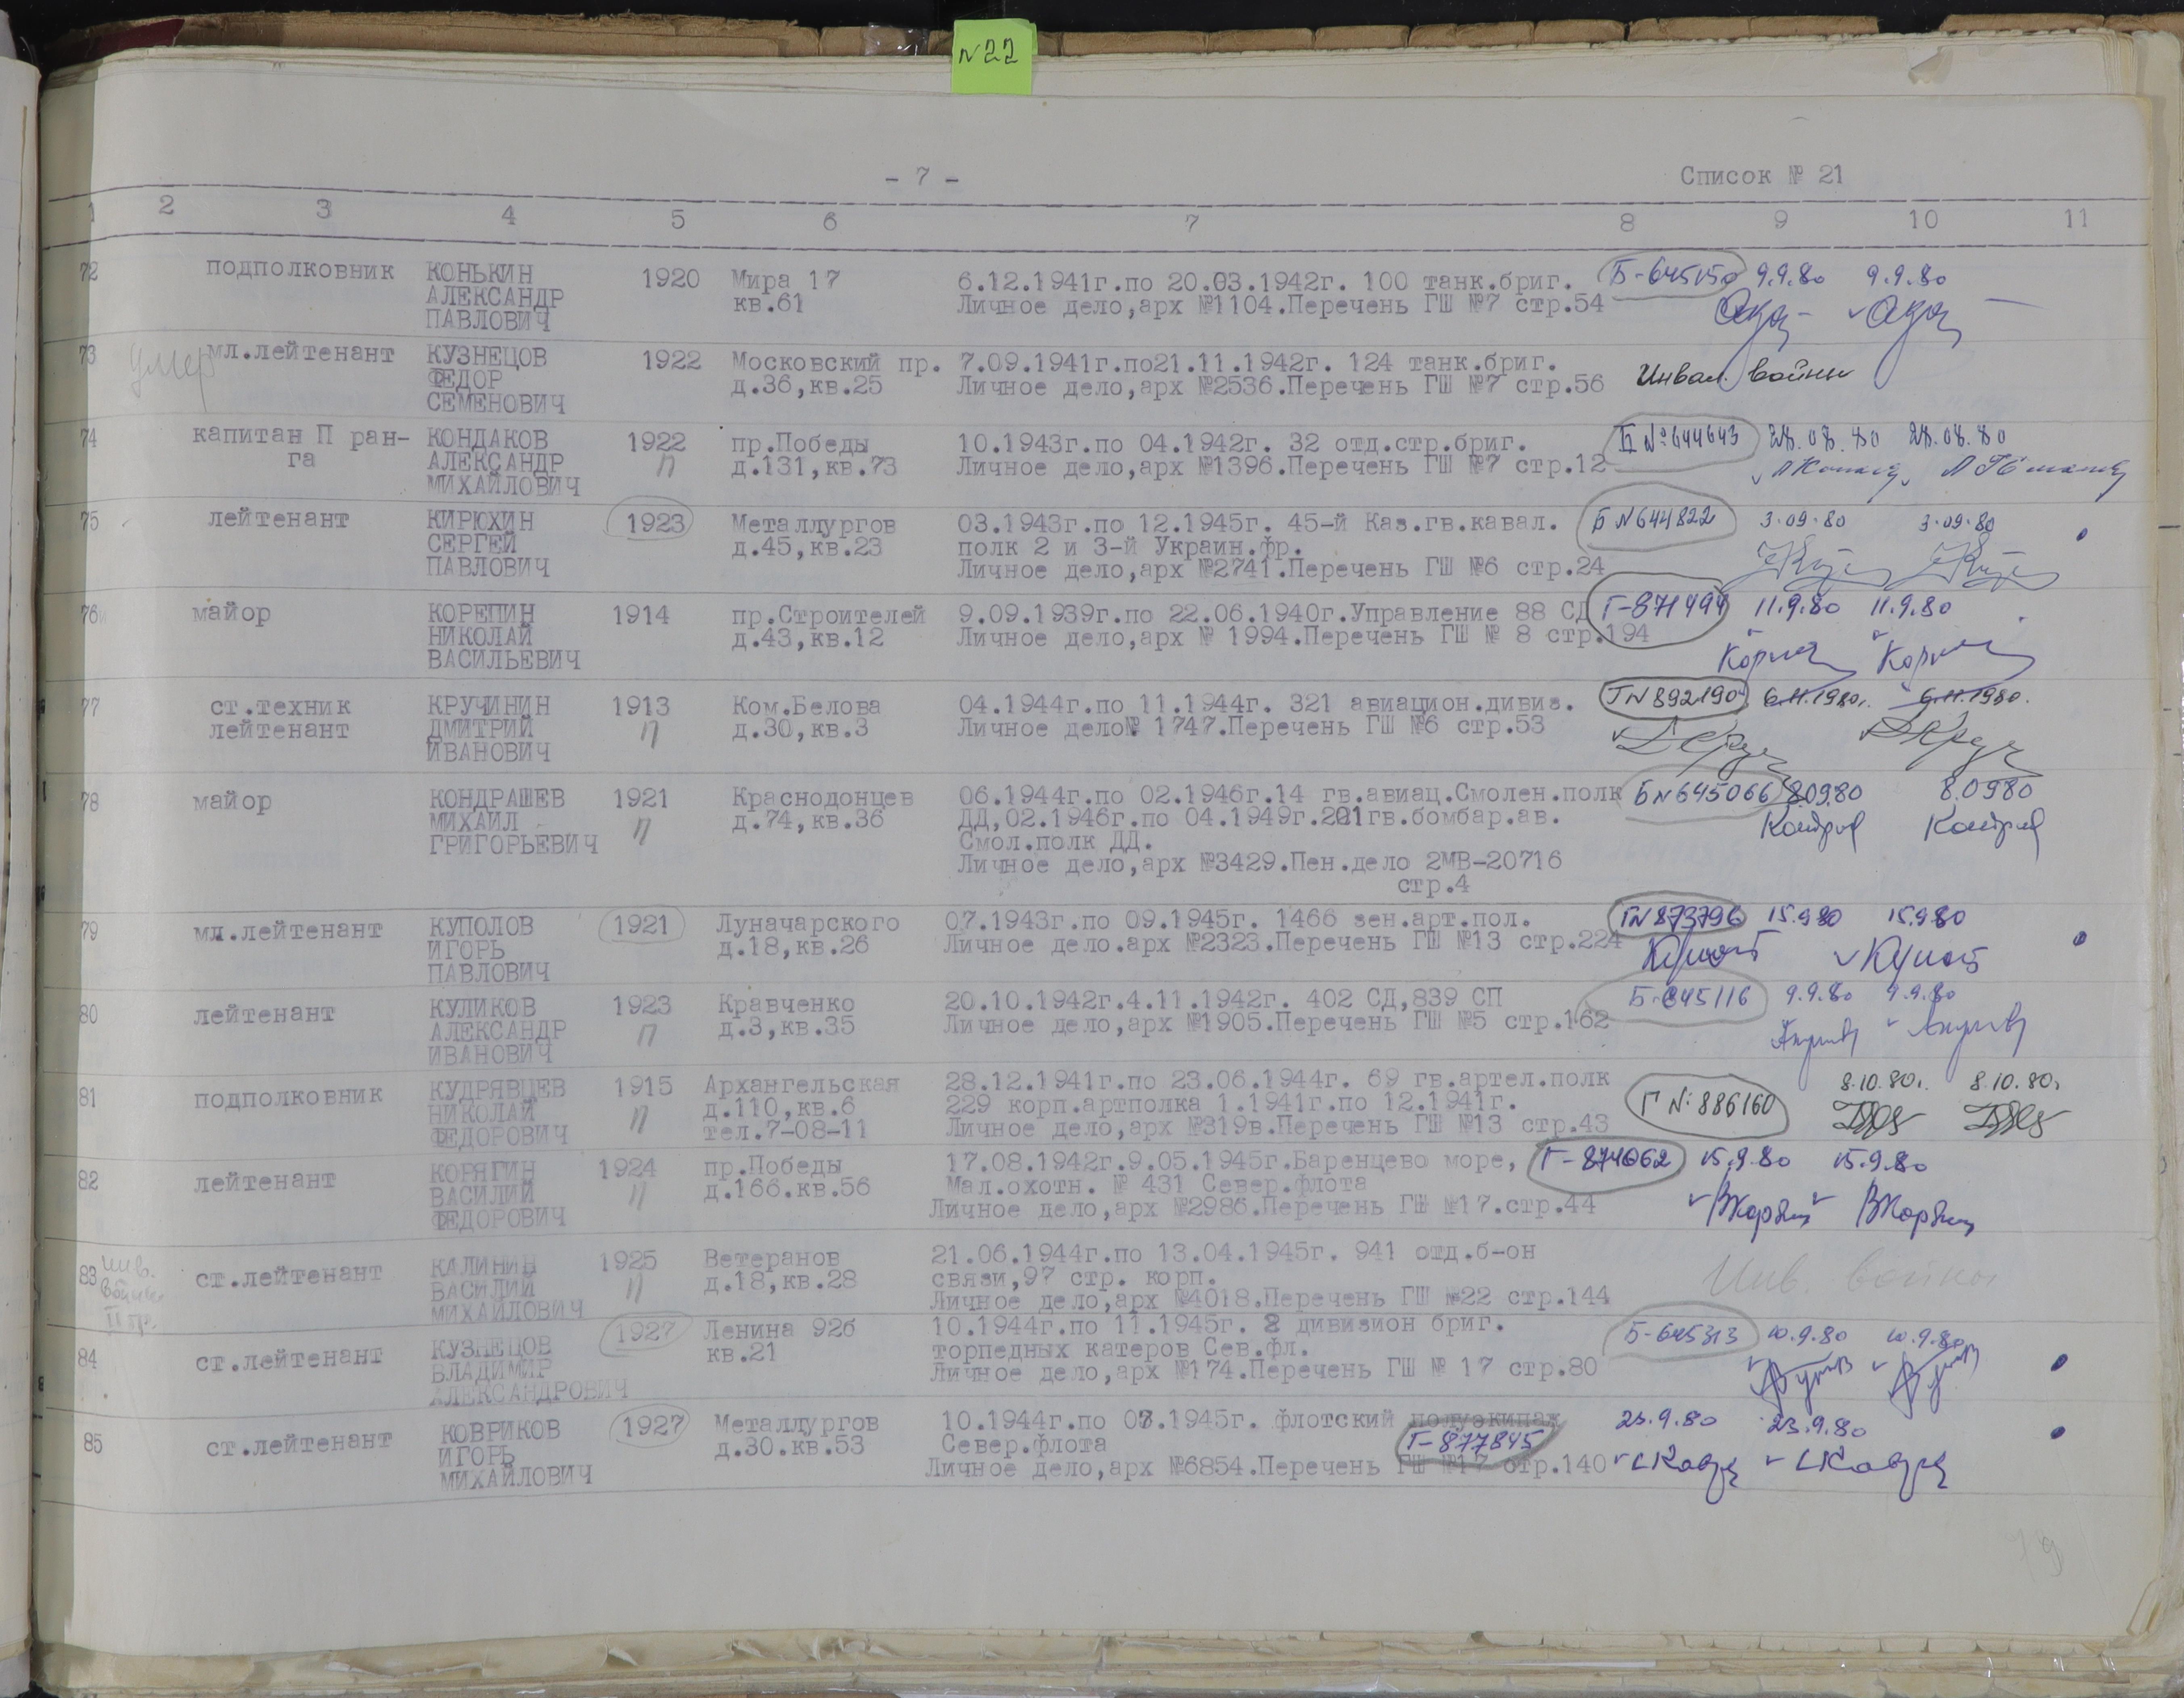 №22
- 7 -
Список № 21
1 2 3 4 5 6 7 8 9 10 11
72 подполковник КОНЬКИН 1920 Мира 17 6.12.1941г.по 20.03.1942г. 100 танк.бриг. Б-645150 9.9.80 9.9.80
АЛЕКСАНДР кв.61 Личное дело,арх №1104.Перечень ГШ №7 стр.54
ПАВЛОВИЧ
73 умер мл.лейтенант КУЗНЕЦОВ 1922 Московский пр. 7.09.1941г.по21.11.1942г. 124 танк.бриг.
ФЕДОР д.36,кв.25 Личное дело,арх №2536.Перечень ГШ №7 стр.56 Инвал. войны
СЕМЕНОВИЧ
74 капитан П ран- КОНДАКОВ 1922 пр.Победы 10.1943г.по 04.1942г. 32 отд.стр.бриг. Б №644643 28.08.80 28.08.80
га АЛЕКСАНДР п д.131,кв.73 Личное дело,арх №1396.Перечень ГШ №7 стр.12
МИХАЙЛОВИЧ
75 лейтенант КИРЮХИН 1923 Металлургов 03.1943г.по 12.1945г. 45-й Каз.гв.кавал. Б №644822 3.09.80 3.09.80
СЕРГЕЙ д.45,кв.23 полк 2 и 3-й Украин.фр.
ПАВЛОВИЧ Личное дело,арх №2741.Перечень ГШ №6 стр.24
76 майор КОРЕПИН 1914 пр.Строителей 9.09.1939г.по 22.06.1940г.Управление 88 СД Г-871494 11.9.80 11.9.80
НИКОЛАЙ д.43,кв.12 Личное дело,арх № 1994.Перечень ГШ № 8 стр.194
ВАСИЛЬЕВИЧ
77 ст.техник КРУЧИНИН 1913 Ком.Белова 04.1944г.по 11.1944г. 321 авиацион.дивиз. Г№892190 6.11.1980. 6.11.1980.
лейтенант ДМИТРИЙ п д.30,кв.3 Личное дело№ 1747.Перечень ГШ №6 стр.53
ИВАНОВИЧ
78 майор КОНДРАШЕВ 1921 Краснодонцев 06.1944г.по 02.1946г.14 гв.авиац.Смолен.полк Б№645066 8.09.80 8.09.80
МИХАИЛ п д.74,кв.36 ДД,02.1946г.по 04.1949г.201гв.бомбар.ав.
ГРИГОРЬЕВИЧ Смол.полк ДД.
Личное дело,арх №3429.Пен.дело 2МВ-20716
стр.4
79 мл.лейтенант КУПОЛОВ 1921 Луначарского 07.1943г.по 09.1945г. 1466 зен.арт.пол. Г№873796 15.9.80 15.9.80
ИГОРЬ д.18,кв.26 Личное дело.арх №2323.Перечень ГШ №13 стр.224
ПАВЛОВИЧ
80 лейтенант КУЛИКОВ 1923 Кравченко 20.10.1942г.4.11.1942г. 402 СД,839 СП Б-645116 9.9.80 9.9.80
АЛЕКСАНДР п д.3,кв.35 Личное дело,арх №1905.Перечень ГШ №5 стр.162
ИВАНОВИЧ
81 подполковник КУДРЯВЦЕВ 1915 Архангельская 28.12.1941г.по 23.06.1944г. 69 гв.артел.полк Г №886160 8.10.80г. 8.10.80г.
НИКОЛАЙ п д.110,кв.6 229 корп.артполка 1.1941г.по 12.1941г.
ФЕДОРОВИЧ тел.7-08-11 Личное дело,арх №319в.Перечень ГШ №13 стр.43
82 лейтенант КОРЯГИН 1924 пр.Победы 17.08.1942г.9.05.1945г.Баренцево море, Г-874062 15.9.80 15.9.80
ВАСИЛИЙ п д.166.кв.56 Мал.охотн. № 431 Север.флота
ФЕДОРОВИЧ Личное дело,арх №2986.Перечень ГШ №17.стр.44
83 инв. войны II гр. ст.лейтенант КАЛИНИН 1925 Ветеранов 21.06.1944г.по 13.04.1945г. 941 отд.б-он Инв. войны
ВАСИЛИЙ п д.18,кв.28 связи,97 стр. корп.
МИХАЙЛОВИЧ Личное дело,арх №4018.Перечень ГШ №22 стр.144
84 ст.лейтенант КУЗНЕЦОВ 1927 Ленина 92б 10.1944г.по 11.1945г. 2 дивизион бриг. Б-645313 10.9.80 10.9.80
ВЛАДИМИР кв.21 торпедных катеров Сев.фл.
АЛЕКСАНДРОВИЧ Личное дело,арх №174.Перечень ГШ № 17 стр.80
85 ст.лейтенант КОВРИКОВ 1927 Металлургов 10.1944г.по 08.1945г. флотский полуэкипаж 23.9.80 23.9.80
ИГОРЬ д.30.кв.53 Север.флота Г-877845
МИХАЙЛОВИЧ Личное дело,арх №6854.Перечень ГШ №17 стр.140
79